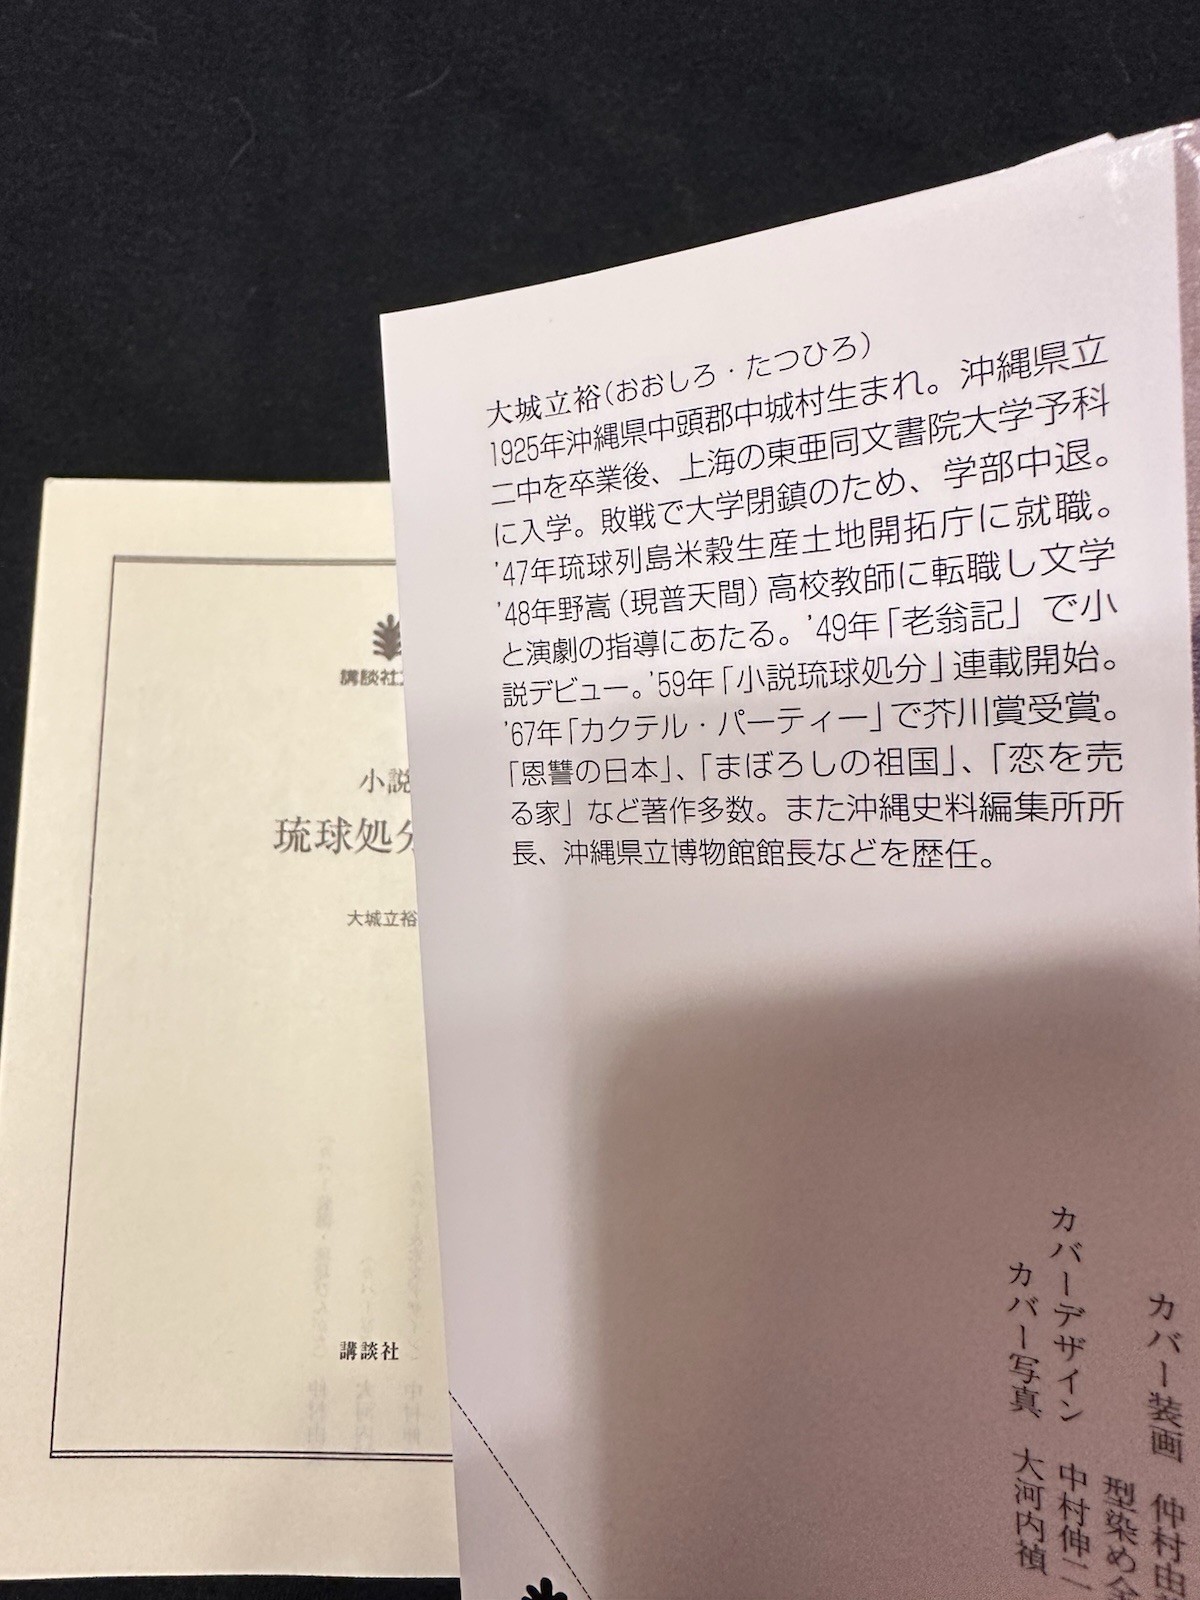 大城立裕(おおしろ・たつひろ)
1925年沖縄県中頭郡中城村生まれ。沖縄県立
二中を卒業後、上海の東亜同文書院大学予科
に入学。敗戦で大学閉鎖のため、学部中退。
'47年琉球列島米穀生産土地開拓庁に就職。
'48年野嵩(現普天間)高校教師に転職し文学
と演劇の指導にあたる。'49年「老翁記」で小
説デビュー。'59年「小説琉球処分」連載開始。
'67年「カクテル・パーティー」で芥川賞受賞。
「恩讐の日本」、「まぼろしの祖国」、「恋を売
る家」など著作多数。また沖縄史料編集所所
長、沖縄県立博物館館長などを歴任。
カバー装画 仲村由
型染め全
カバーデザイン 中村伸二
カバー写真 大河内禎
講談社
小説
琉球処分
大城立裕
講談社